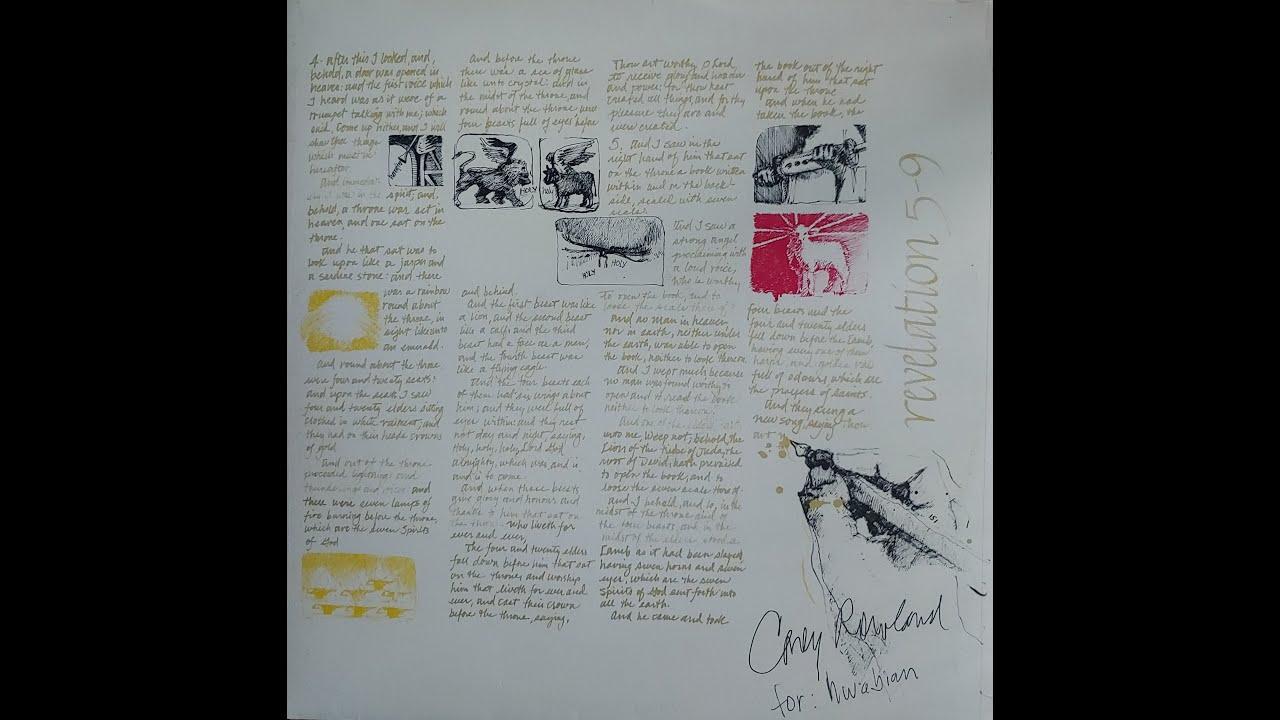 4. After this I looked, and,
behold, a door was opened in
heaven: and the first voice which
I heard was as it were of a
trumpet talking with me; which
said, Come up hither, and I will
shew thee things
which must be
hereafter.
And immediately
I was in the spirit; and,
behold, a throne was set in
heaven, and one sat on the
throne.
And he that sat was to
look upon like a jasper and
a sardine stone: and there
was a rainbow
round about
the throne, in
sight like unto
an emerald.
And round about the throne
were four and twenty seats:
and upon the seats I saw
four and twenty elders sitting
clothed in white raiment; and
they had on their heads crowns
of gold
And out of the throne
proceeded lightnings and
thunderings and voices and
there were seven lamps of
fire burning before the throne,
which are the seven Spirits
of God
And before the throne
there was a sea of glass
like unto crystal: and in
the midst of the throne, and
round about the throne were
four beasts full of eyes before
HOLY
HOLY
HOLY
HOLY
and behind.
And the first beast was like
a lion, and the second beast
like a calf, and the third
beast had a face as a man,
and the fourth beast was
like a flying eagle
And the four beasts each
of them had six wings about
him; and they were full of
eyes within: and they rest
not day and night, saying,
Holy, holy, holy, Lord God
almighty, which was and is
and is to come.
And when those beasts
give glory and honour and
thanks to him that sat on
the throne who liveth for
ever and ever,
The four and twenty elders
fall down before him that sat
on the throne, and worship
him that liveth for ever and
ever, and cast their crown
before the throne, saying,
Thou art worthy, O Lord,
to receive glory and honour
and power: for thou hast
created all things, and for thy
pleasure they are and
were created.
5. And I saw in the
right hand of him that sat
on the throne a book written
within and on the back-
side, sealed with seven
seals.
And I saw a
strong angel
proclaiming with
a loud voice,
Who is worthy
to open the book, and to
loose the seals thereof?
and no man in heaven,
nor in earth, neither under
the earth, was able to open
the book, neither to look thereon
and I wept much because
no man was found worthy to
open and to read the book
neither to look thereon.
And one of the elders
unto me, Weep not; behold, the
Lion of the tribe of Juda, the
root of David, hath prevailed
to open the book, and to
loose the seven seals thereof
and I beheld, and, lo, in the
midst of the throne and of
the four beasts, and in the
midst of the elders stood a
Lamb as it had been slayed,
having seven horns and seven
eyes, which are the seven
Spirits of God sent forth into
all the earth.
And he came and took
the book out of the right
hand of him that sat
upon the throne
and when he had
taken the book, the
four beasts and the
four and twenty elders
fell down before the Lamb,
having every one of them
harps, and golden vials
full of odours which are
the prayers of saints.
And they sung a
new song, saying, Thou
art
revelation 5-9
151
Corey Rowland
for: Nwabian